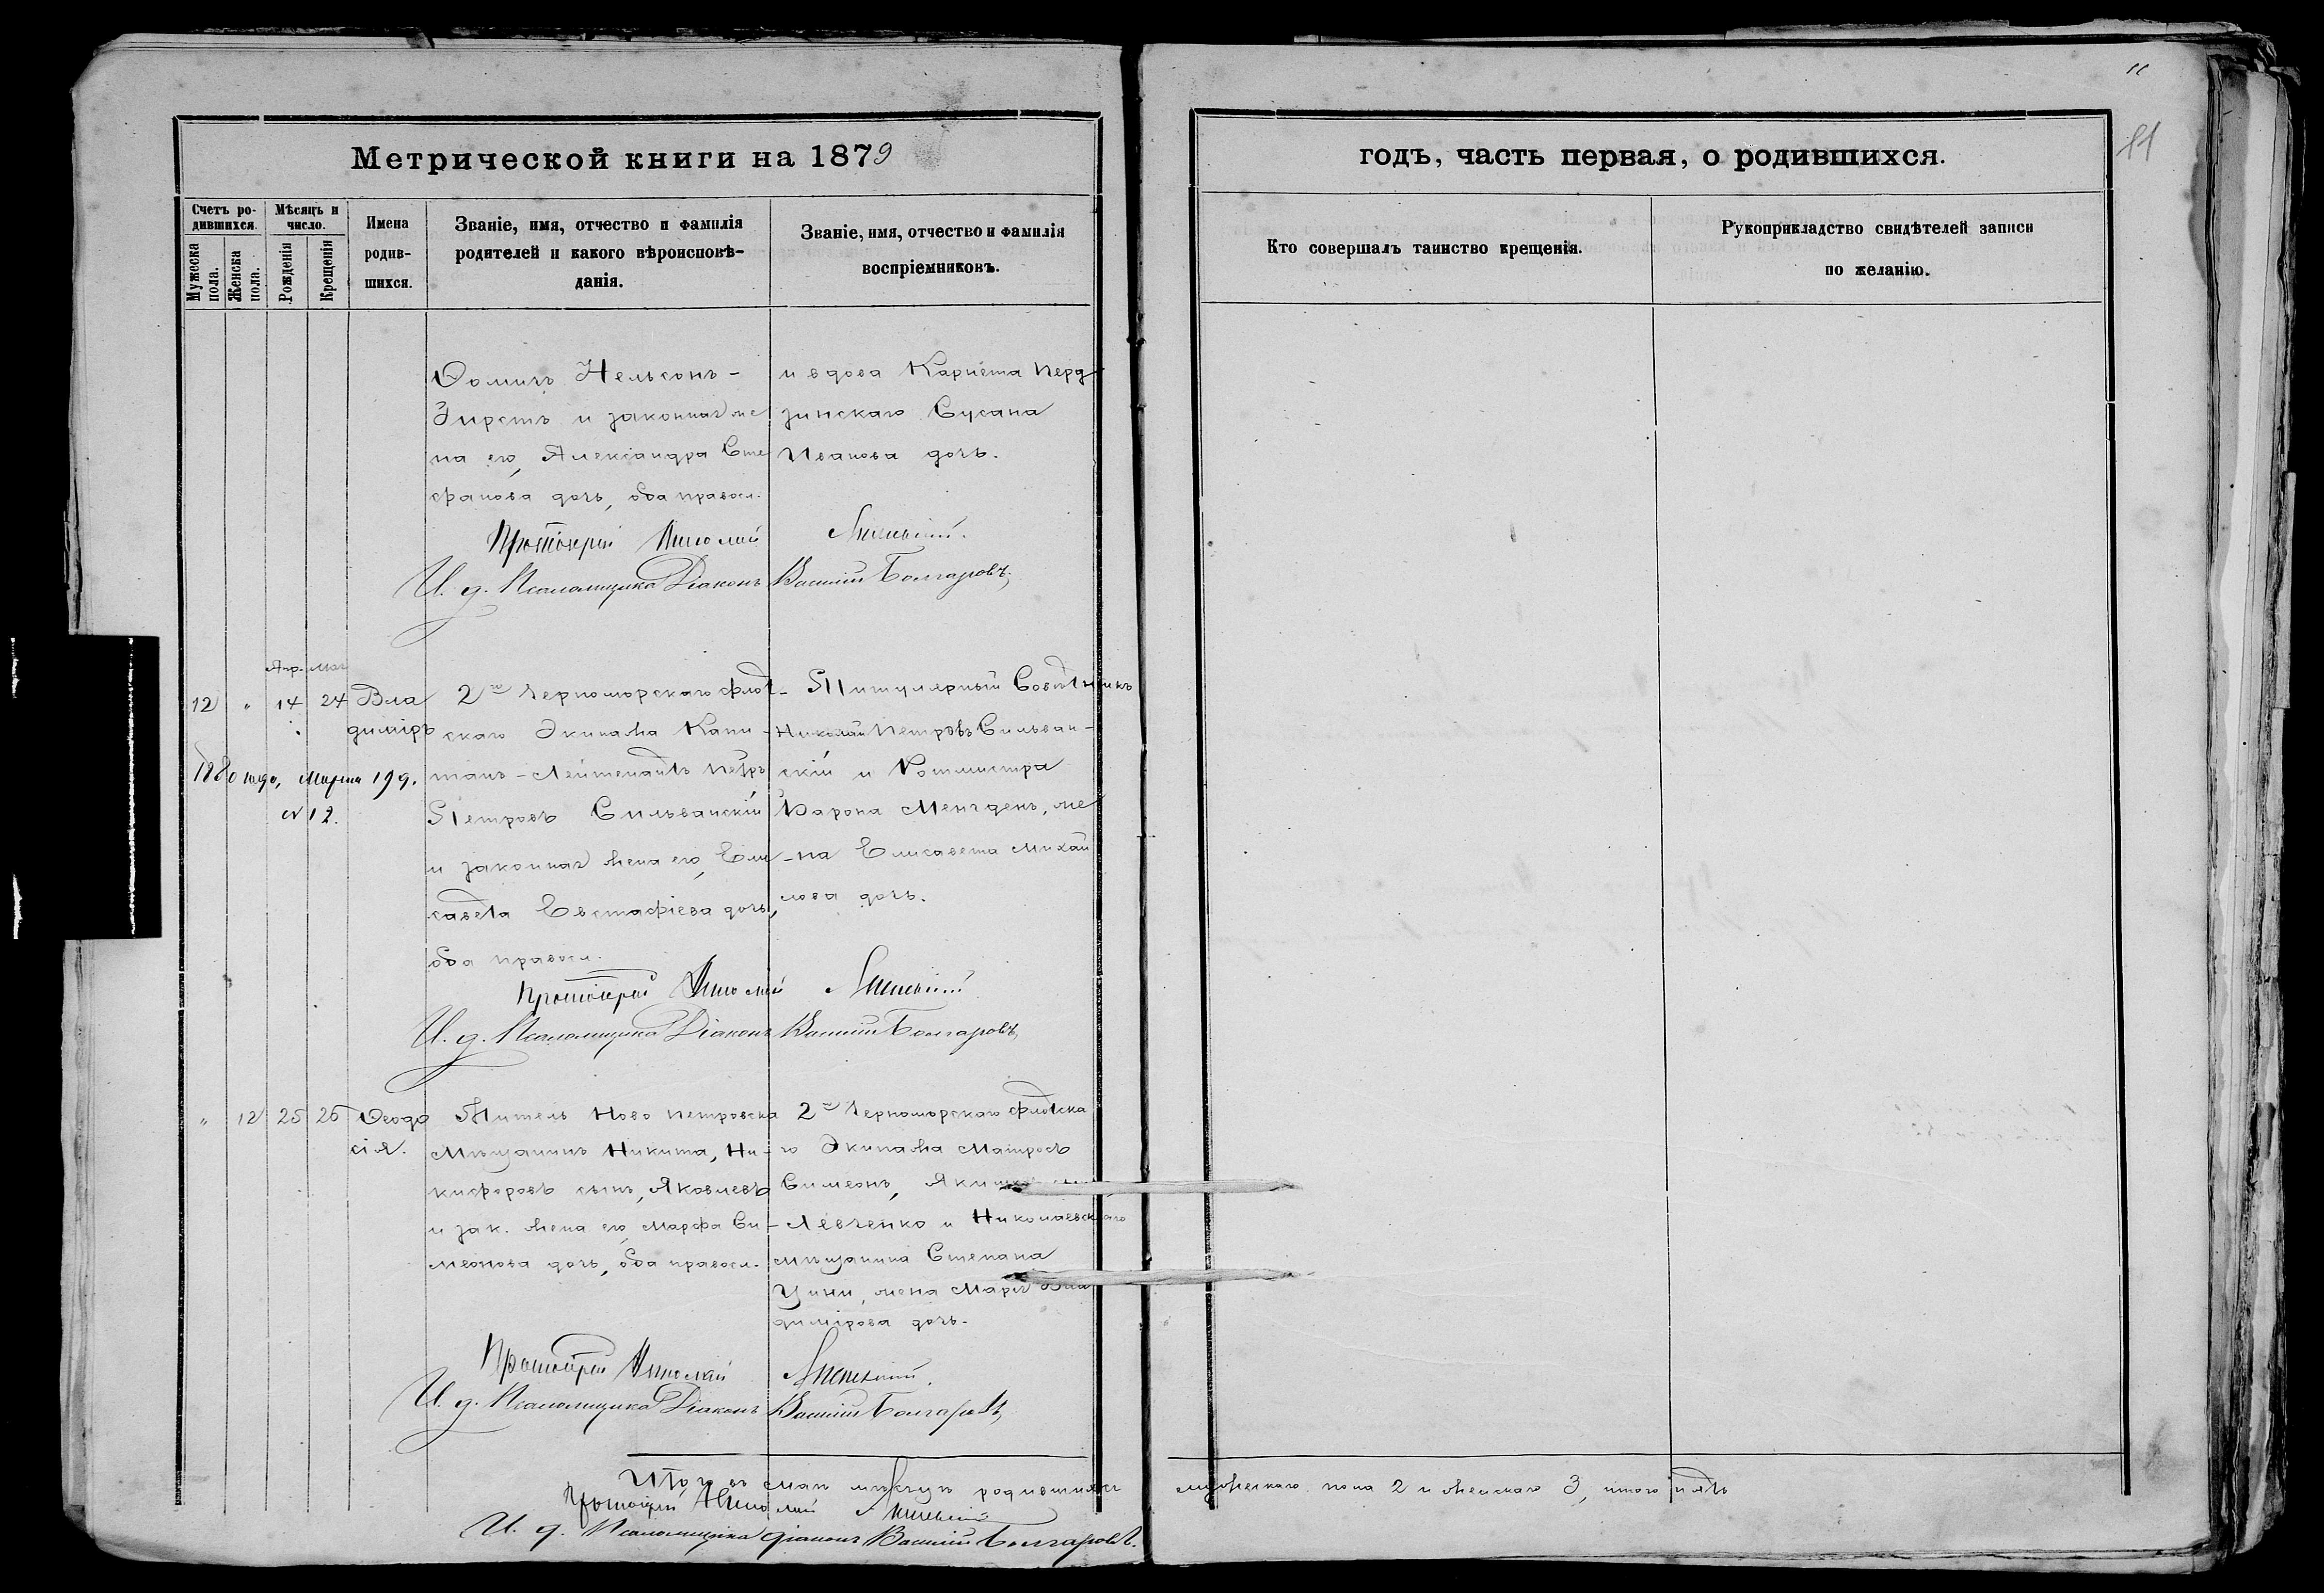 11
Метрической книги на 1879
годъ, часть первая, о родившихся.
11
Счетъ родившихся.
Мѣсяцъ и число.
Мужеска пола.
Женска пола.
Рожденія
Крещенія
Имена родившихся.
Званіе, имя, отчество и фамилія
родителей и какого вѣроисповѣ-
данія.
Званіе, имя, отчество и фамилія
воспріемниковъ.
Кто совершалъ таинство крещенія.
Рукоприкладство свидѣтелей записи
по желанію.
Ѳомичъ Нельсонъ-
Гирстъ и законная же
на его, Александра Сте
фанова дочь, оба правосл.
и вдова Карнета Перд
зинскаго Сусана
Иванова дочь.
Протоіерей Николай
И. д. Псаломщика Діаконъ Василій Болгаровъ,
Апр. Мая
12 " 14 24 Вла
диміръ
2го Черноморскаго флот-
скаго Экипажа Капи-
танъ-Лейтенантъ Петръ
Петровъ Сильванскій
и законная жена его, Ели
савета Евстафіева дочь,
оба правосл.
Титулярный Совѣтникъ
Николай Петровъ Сильван-
скій и Ротмистра
Барона Менгденъ, же
-на Елисавета Михаи
лова дочь.
1880 года, Марта 19 д.
N 12.
Протоіерей Николай
И. д. Псаломщика Діаконъ Василій Болгаровъ
" 12 25 26 Ѳеодо
сія.
Житель Ново Петровска
Мѣщанинъ Никита, Ни-
кифоровъ сынъ, Яковлевъ
и зак. жена его Марфа Си-
меонова дочь, оба правосл.
2го Черноморскаго флотска
го Экипажа Матросъ
Симеонъ,
Левченко и Николаевскаго
мѣщанина Степана
жена Марія Вла
димірова дочь.
Протоіерей Николай
И. д. Псаломщика Діаконъ Василій Болгаровъ
Итого въ маѣ мѣсяцѣ родившихся мужескаго пола 2 и женскаго 3, итого пять
Протоіерей Николай
И. д. Псаломщика діаконъ Василій Болгаровъ.